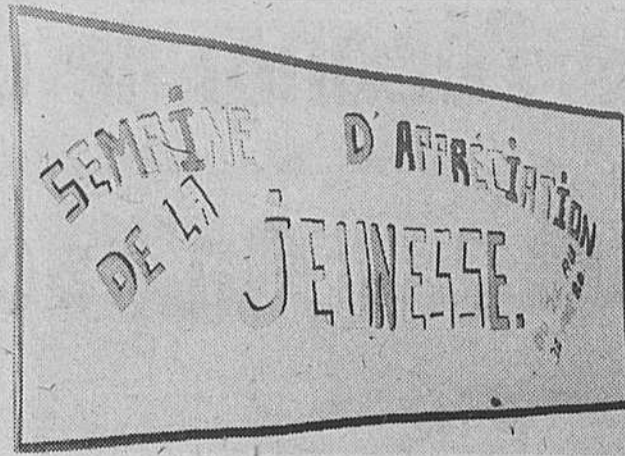 SEMAiNE D'APPRÉCiATiON
DE LA JEUNESSE.